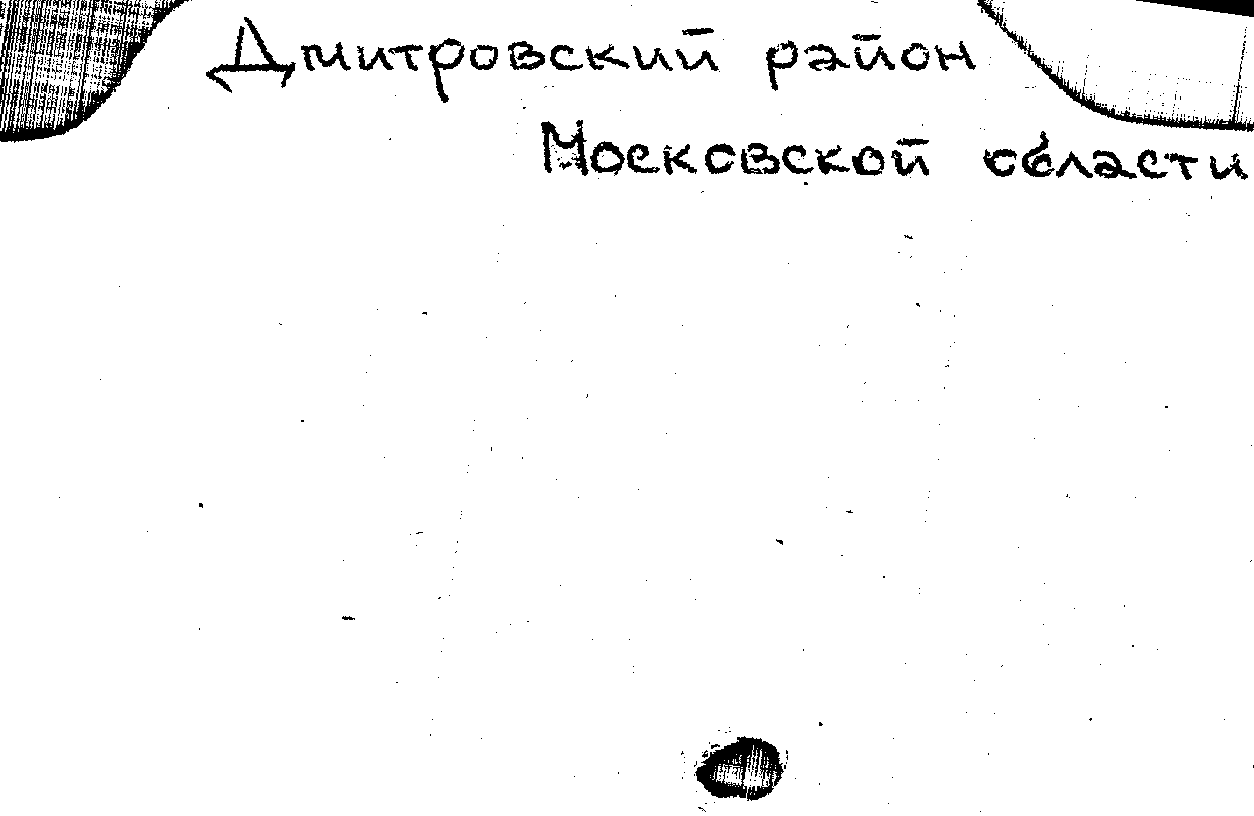 Дмитровский район
Московской области